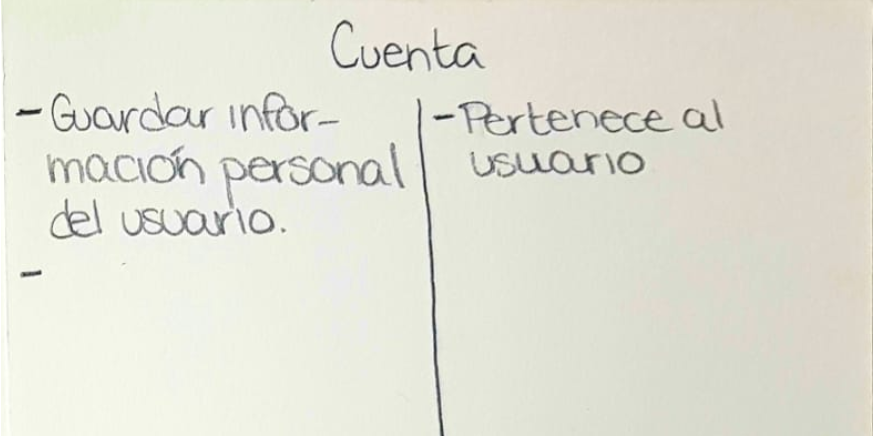 Cuenta
- Guardar infor-
mación personal
del usuario.
-
- Pertenece al
usuario